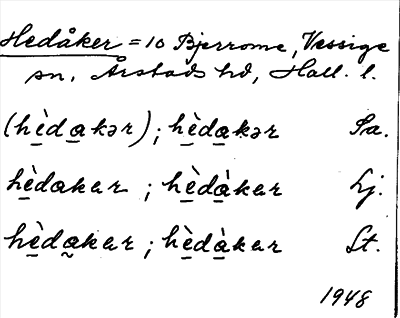 Hedåker = 10 Bjerrome, Vessige
sn, Årstads hd, Hall. l.
(hèdakər); hèdakər Sa.
hèdakar ; hèdàkar Lj.
hèdakar ; hèdàkar St.
1948